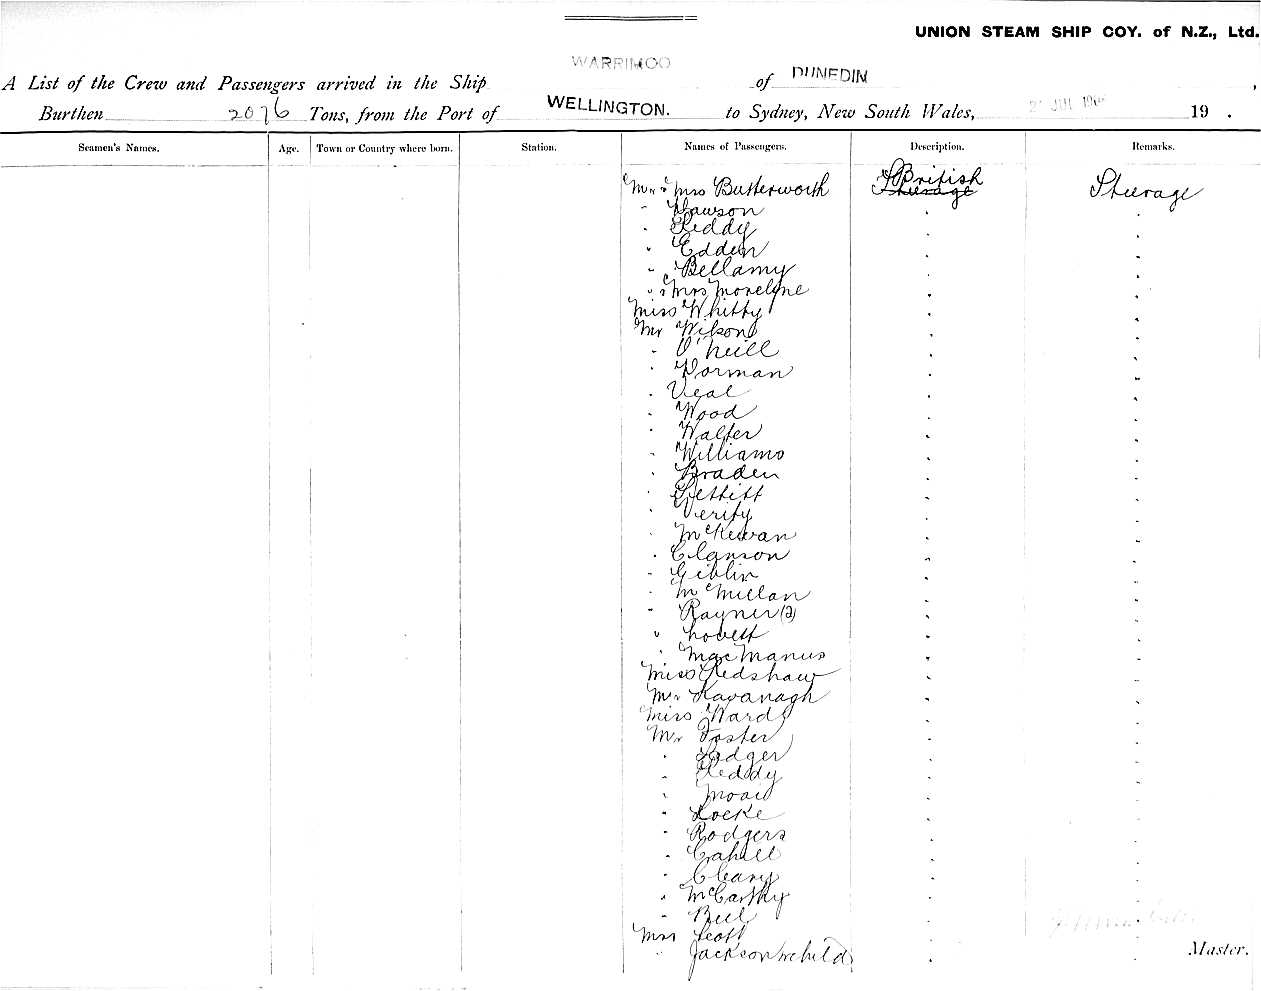 UNION STEAM SHIP COY. of N.Z., Ltd.
A List of the Crew and Passengers arrived in the Ship WARRIMOO of DUNEDIN,
Burthen 2076 Tons, from the Port of WELLINGTON. to Sydney, New South Wales, JUL 19 .
Seamen's Names. Age. Town or Country where born. Station. Names of Passengers. Description. Remarks.
Mr & Mrs Butterworth British Steerage
" Dawson " "
" Reddy " "
" Edden " "
" Bellamy " "
" & Mrs Moreline " "
Miss Whitty " "
Mr Wilson " "
" O'Neill " "
" Norman " "
" Veal " "
" Wood " "
" Walter " "
" Williams " "
" Braden " "
" Pettitt " "
" Verity " "
" McKewan " "
" Clanson " "
" Giblin " "
" McMillan " "
" Rayner (2) " "
" Lovett " "
" MacManus " "
Miss Redshaw " "
Mr Kavanagh " "
Miss Ward " "
Mr Foster " "
" Lodger " "
" Reddy " "
" " "
" Locke " "
" Rodgers " "
" Cahill " "
" Cleary " "
" McCarthy " "
" Bell " "
Mrs Scott
" Jackson & child " "
Master.